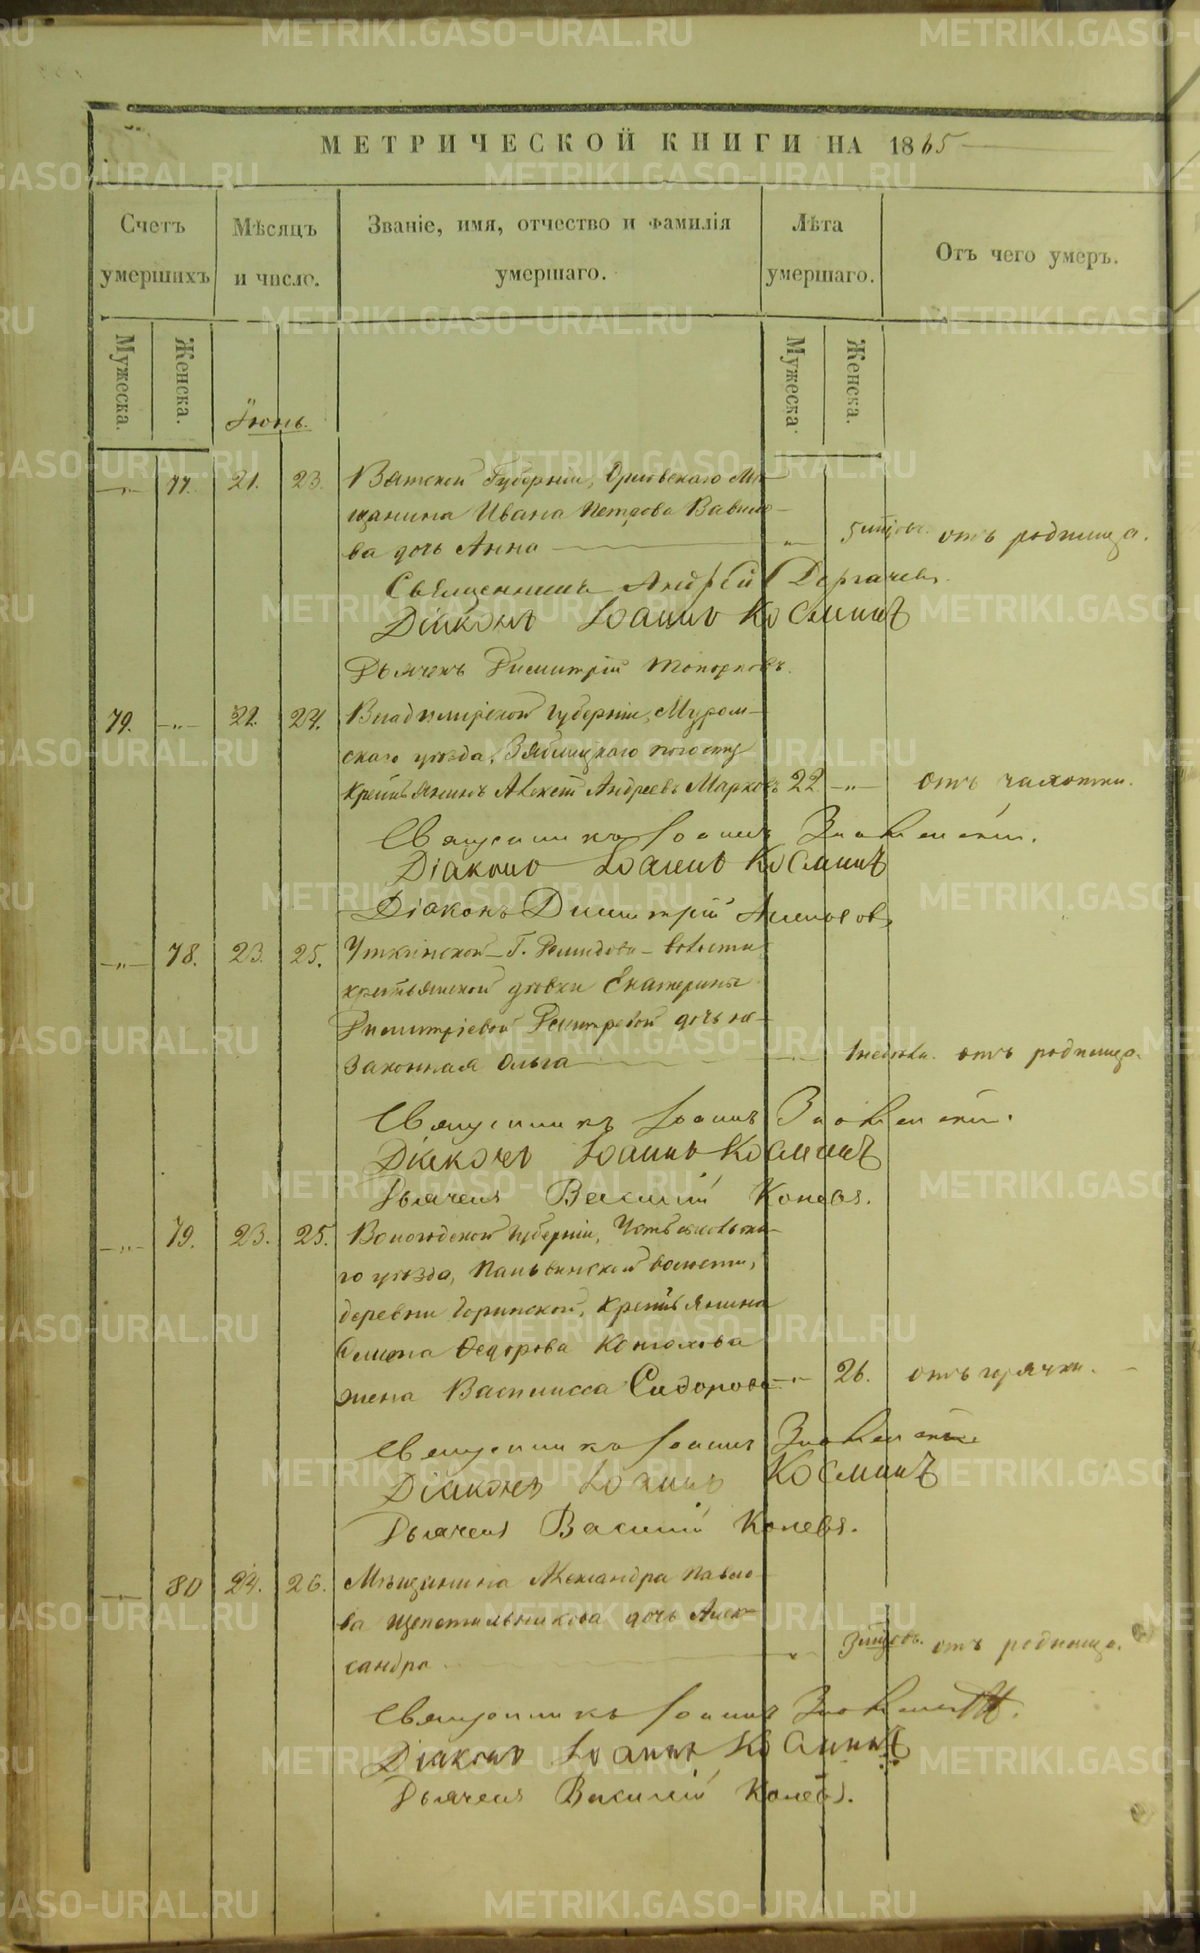 МЕТРИЧЕСКОЙ КНИГИ НА 1865
Счетъ умершихъ
Мѣсяцъ и число.
Званіе, имя, отчество и фамилія умершаго.
Лѣта умершаго.
Отъ чего умеръ.
Мужеска. Женска. Мужеска Женска.
Іюнь.
77. 21. 23. Вятской Губерніи, Орловскаго Мѣ-
щанина Ивана Петрова Вавило-
ва дочь Анна 5 отъ родимца.
Священникъ Андрей Дергачевъ.
Діаконъ Іоаннъ Косминъ
Дьячекъ Димитрій Топорковъ.
79. 22. 24. Владимірской губерніи, Муром-
скаго уѣзда, Зяблицкаго погоста
Крестьянинъ Алексей Андреевъ Марковъ 22 отъ чахотки.
Священникъ Іоаннъ Знаменскій.
Діаконъ Іоаннъ Косминъ
Діаконъ Димитрій
78. 23. 25. Уткинской Г. Демидова волости
крестьянской дѣвки Екатерины
Димитріевой дочь не-
законная Ольга 1 недѣли. отъ родимца.
Священникъ Іоаннъ Знаменскій.
Діаконъ Іоаннъ Косминъ
Дьячекъ Василий Коневъ.
79. 23. 25. Вологодской губерніи, Устьсысольска-
го уѣзда, волости,
деревни Горинской, Крестьянина
Федорова
жена Василисса Сидорова 26. отъ горячки.
Священникъ Іоаннъ Знаменскій
Діаконъ Іоаннъ Косминъ
Дьячекъ Василий Коневъ.
80 24. 26. Мѣщанина Александра Павло-
ва Щепетильникова дочь Алек-
сандра 3 отъ родимца.
Священникъ Іоаннъ Знаменскій.
Діаконъ Іоаннъ Косминъ
Дьячекъ Василій Коневъ.
METRIKI.GASO-URAL.RU